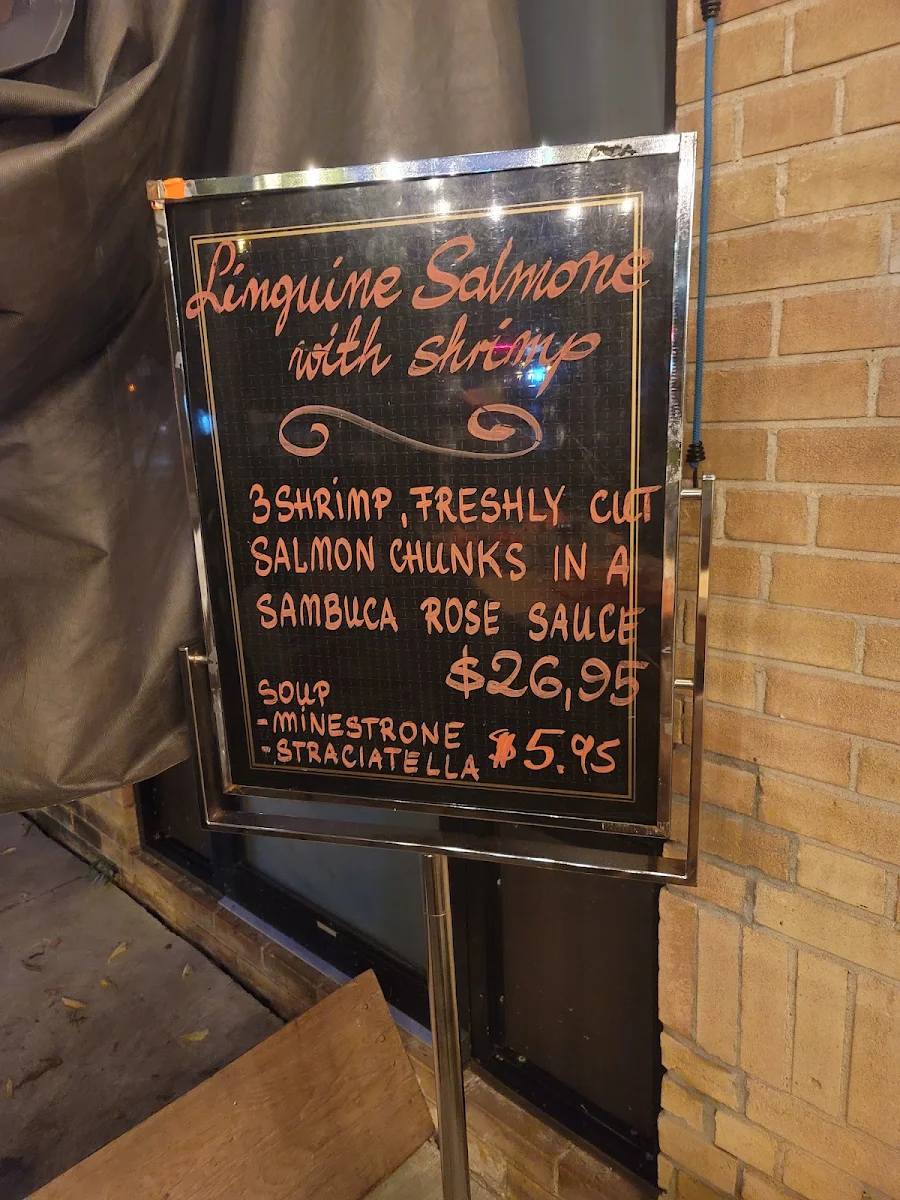 Linguine Salmone
with shrimp
3 SHRIMP, FRESHLY CUT
SALMON CHUNKS IN A
SAMBUCA ROSE SAUCE
$26,95
SOUP
- MINESTRONE
- STRACIATELLA $5.95